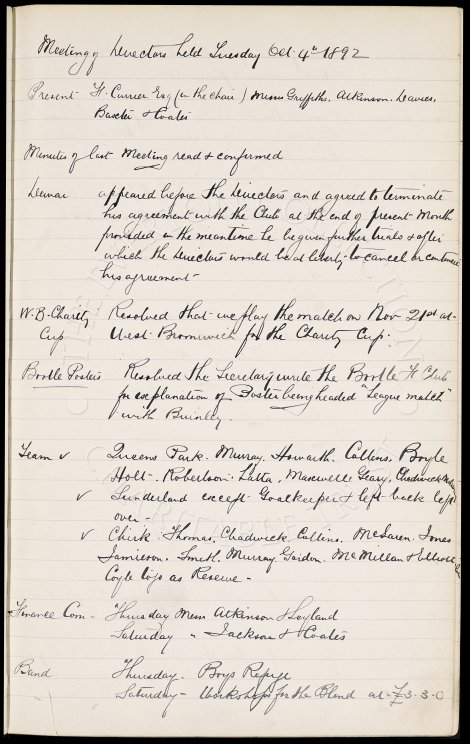 Meeting of Directors held Tuesday Oct 4th 1892
Present F. Currier Esq (in the chair) Messrs Griffiths, Atkinson, Davies,
Baxter & Coates
Minutes of last Meeting read & confirmed
Dewar appeared before the Directors and agreed to terminate
his agreement with the Club at the end of present Month
provided in the meantime he be given further trials & after
which the Directors would be at liberty to cancel or continue
his agreement -
W. B. Charity Resolved that we play the match on Nov 21st at
Cup. West Bromwich for the Charity Cup.
Bootle Posters Resolved the Secretary write the Bootle F. Club
for explanation of Poster being headed "League match"
with Burnley.
Team v Queens Park. Murray. Howarth. Collins. Boyle
Holt. Robertson. Latta. Maxwell. Geary. Chadwick
v Sunderland except Goalkeeper & left back left
over -
v Chirk. Thomas. Chadwick. Collins. McLaren. Jones
Jamieson. Smith. Murray. Gordon. McMillan & Elliott
Coyle as Reserve -
Finance Com - Thursday Messrs Atkinson & Leyland
Saturday " Jackson & Coates
Band Thursday - Boys Refuge
Saturday - Workshops for the Blind at £3-3-0